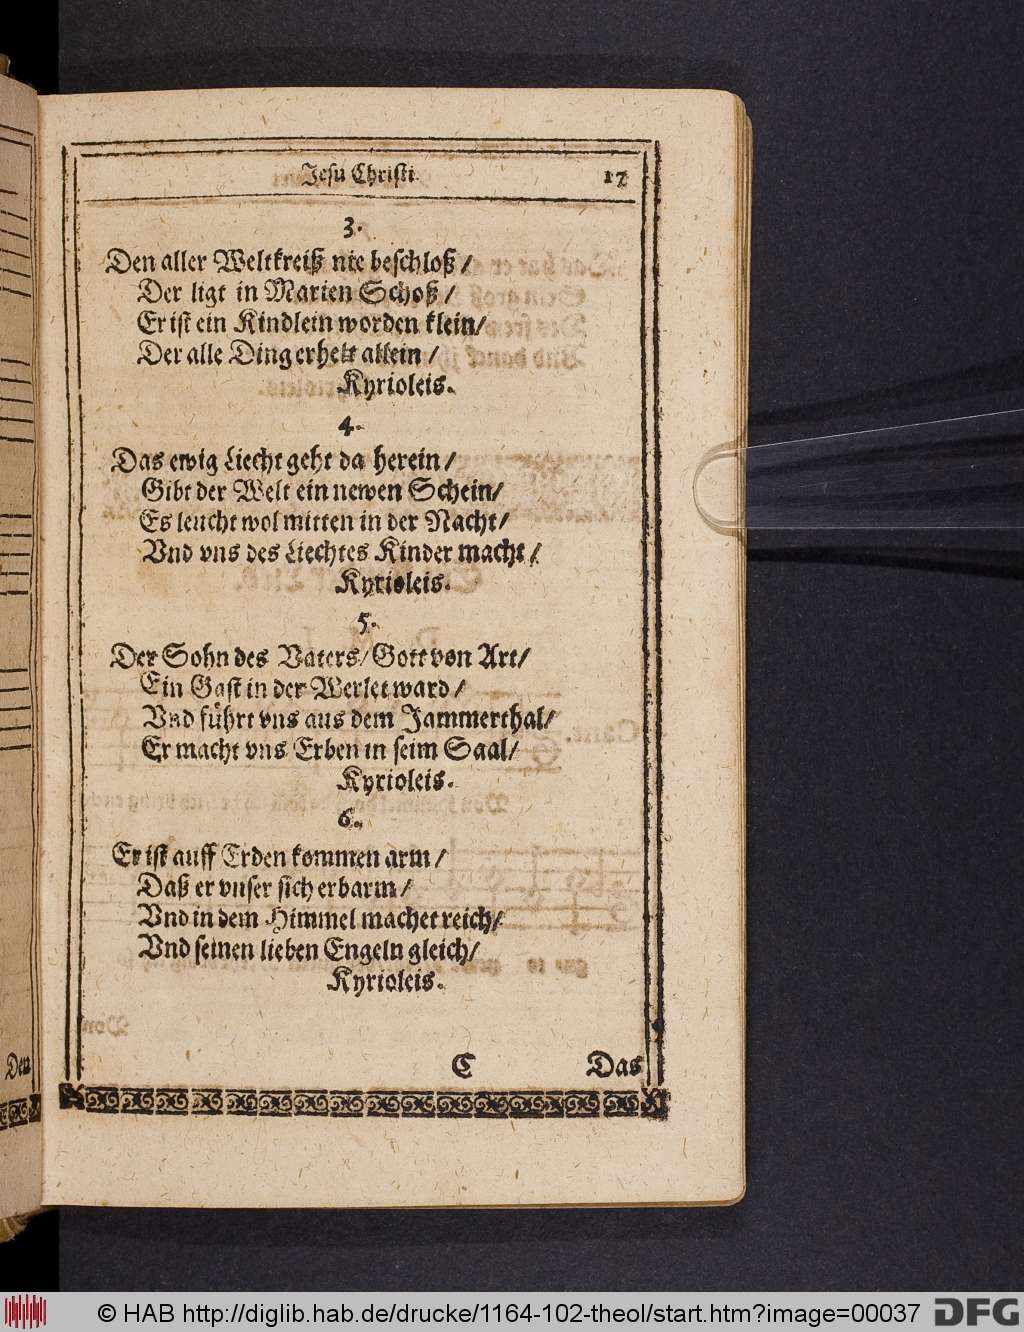 Jesu Christi. 17
3.
Den aller Weltkreiß nie beschloß /
Der ligt in Marien Schoß /
Er ist ein Kindlein worden klein /
Der alle Ding erhelt allein /
Kyrioleis.
4.
Das ewig Liecht geht da herein /
Gibt der Welt ein newen Schein /
Es leucht wol mitten in der Nacht /
Vnd vns des Liechtes Kinder macht /
Kyrioleis.
5.
Der Sohn des Vaters / Gott von Art /
Ein Gast in der Werlet ward /
Vnd führt vns aus dem Jammerthal /
Er macht vns Erben in seim Saal /
Kyrioleis.
6.
Er ist auff Erden kommen arm /
Daß er vnser sich erbarm /
Vnd in dem Himmel machet reich /
Vnd seinen lieben Engeln gleich /
Kyrioleis.
C Das
Den
© HAB http://diglib.hab.de/drucke/1164-102-theol/start.htm?image=00037 DFG